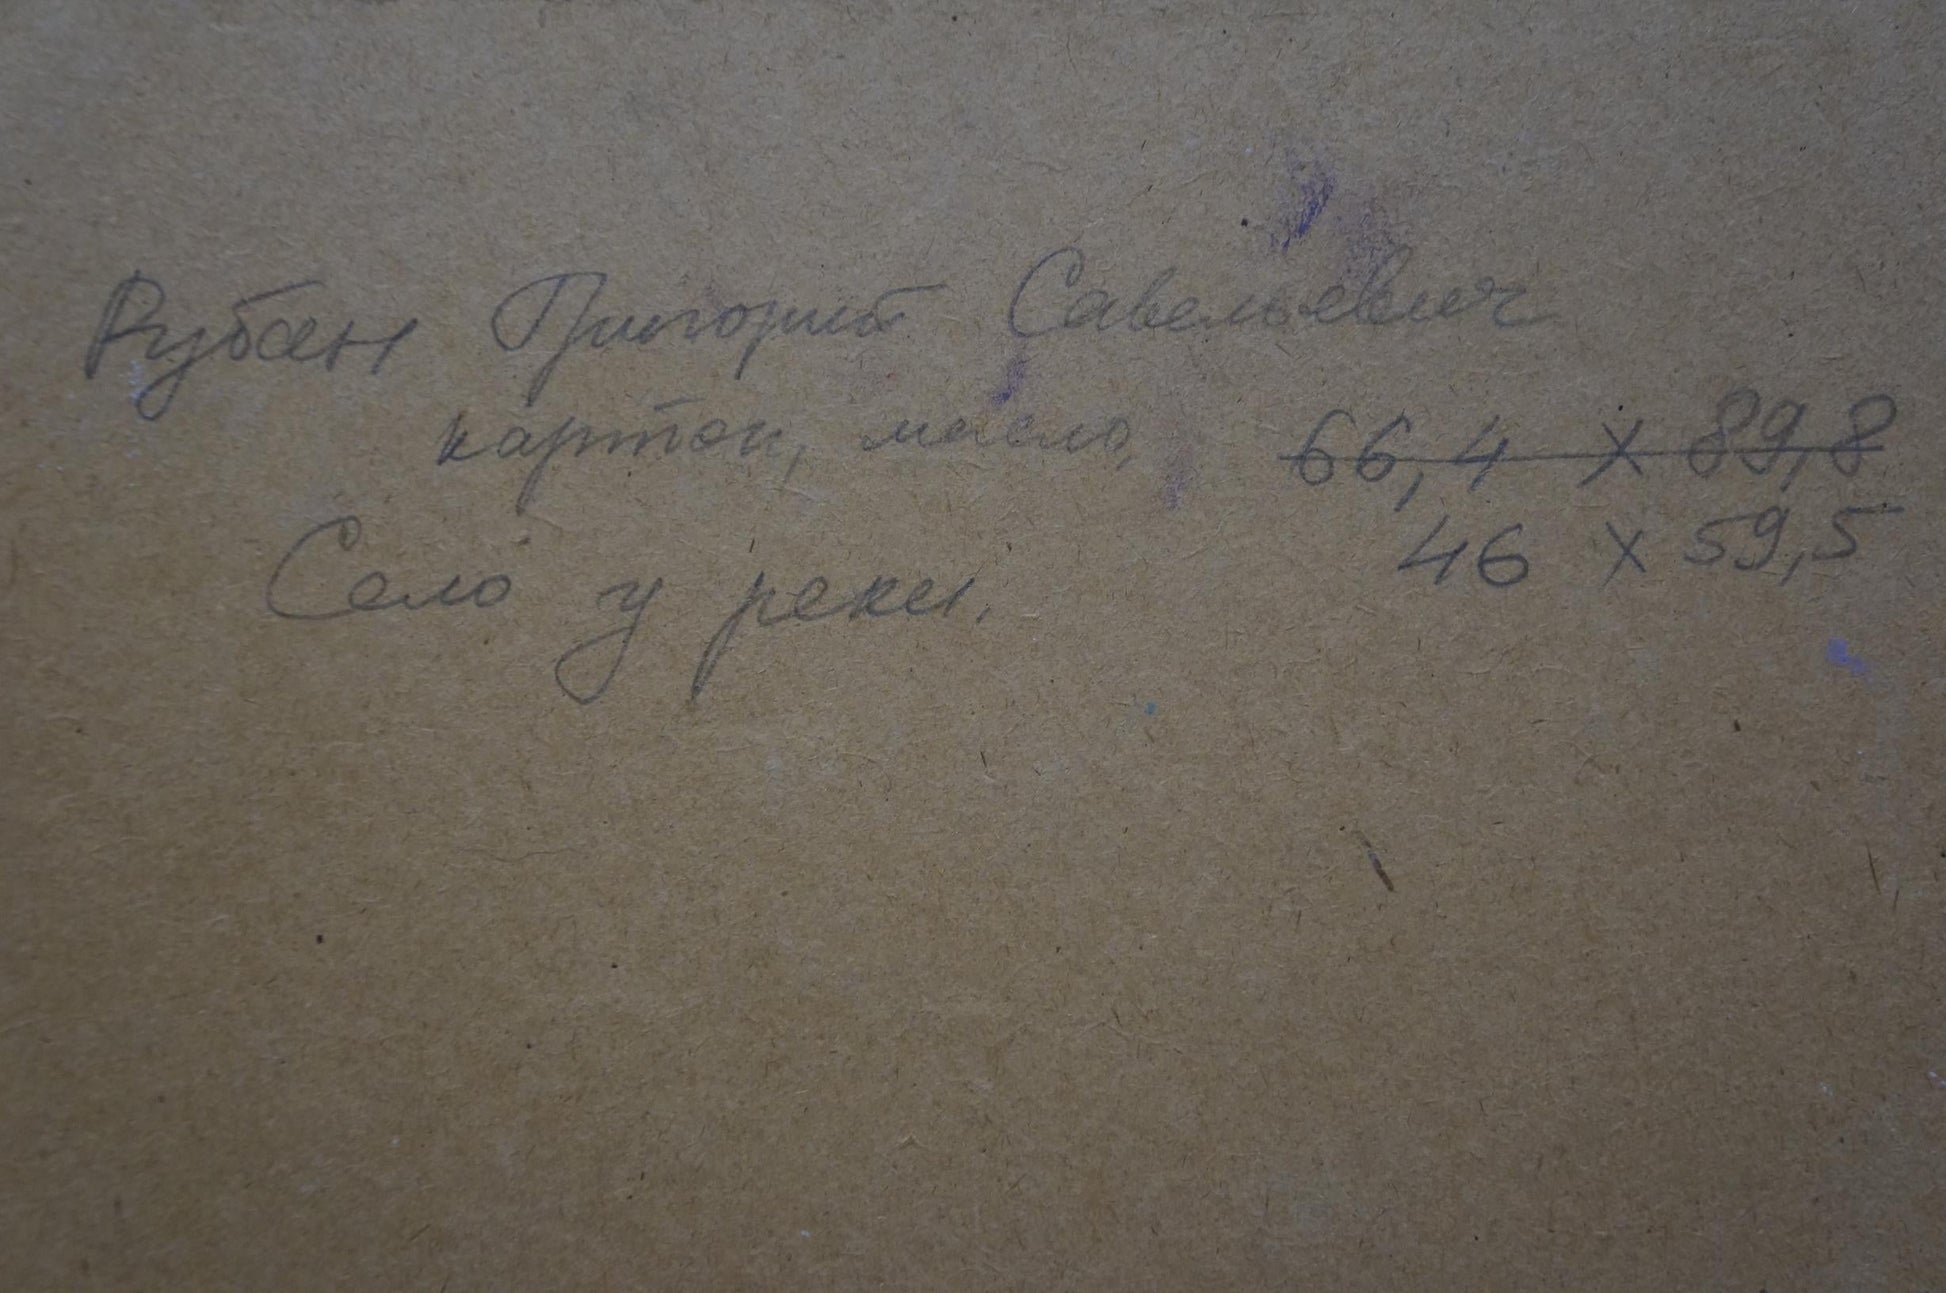 Рубан Григорий Савельевич
картон, масло, 66,4 х 89,8
46 х 59,5
Село у реки.